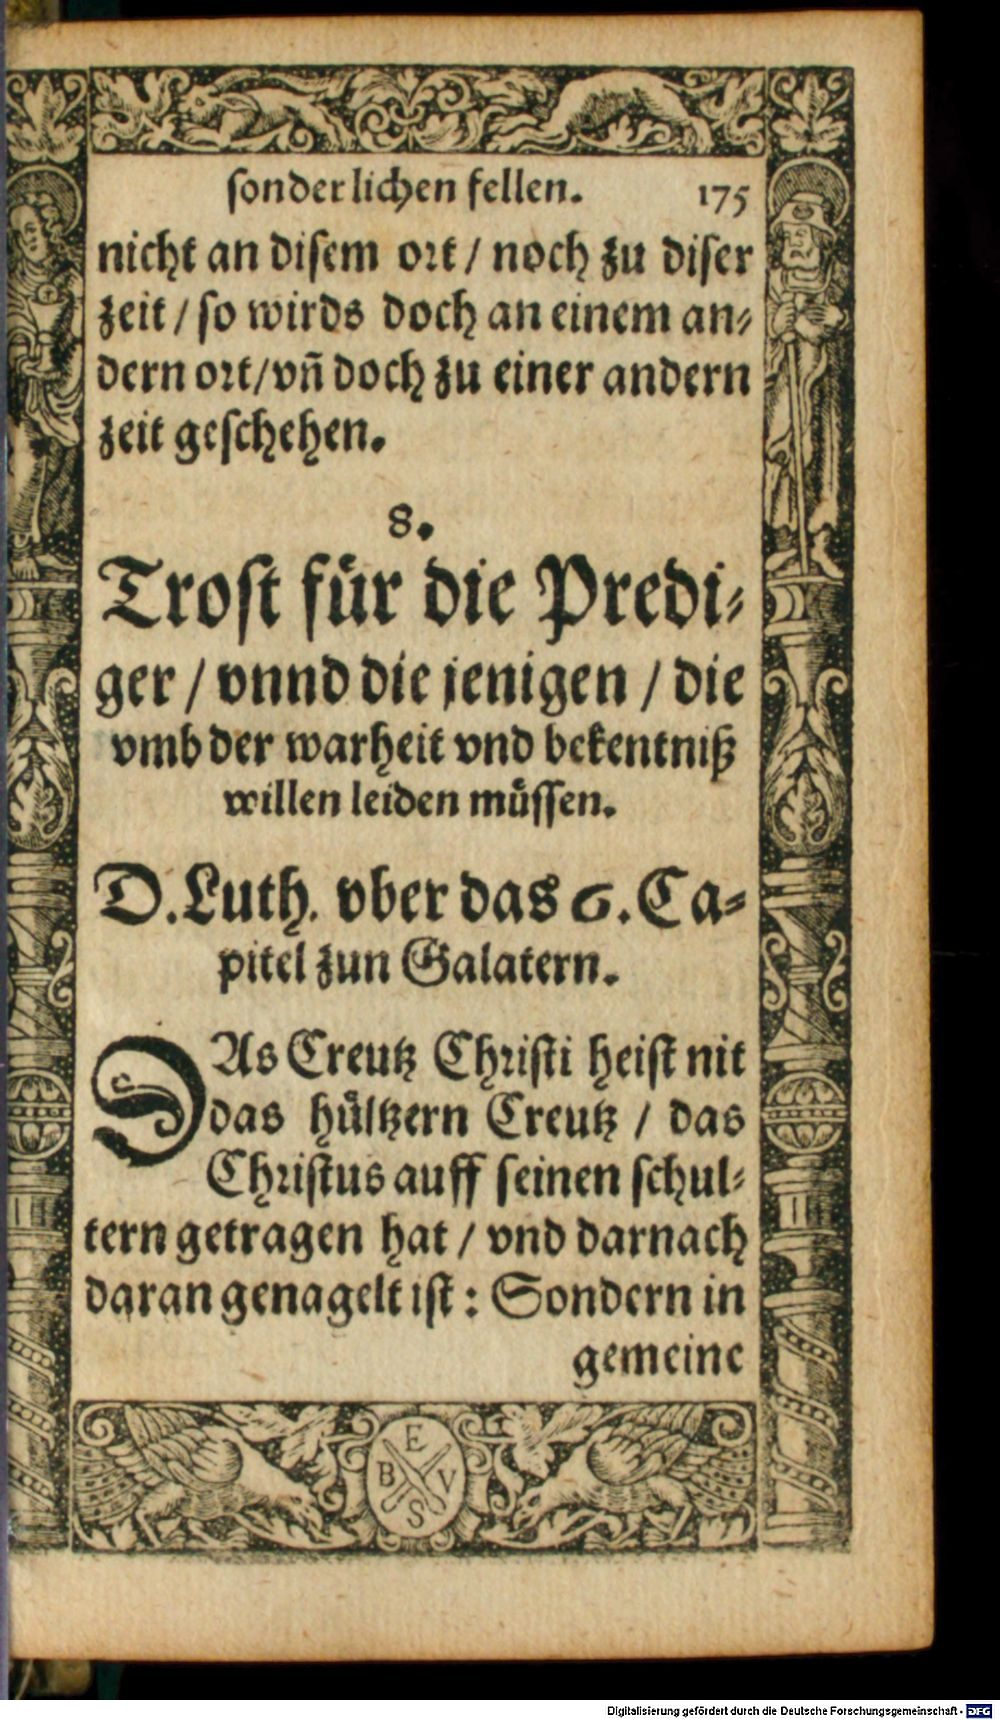 sonderlichen fellen. 175
nicht an disem ort / noch zu diser
zeit / so wirds doch an einem an-
dern ort / vñ doch zu einer andern
zeit geschehen.
8.
Trost für die Predi-
ger / vnnd die jenigen / die
vmb der warheit vnd bekentniß
willen leiden müssen.
D. Luth. vber das 6. Ca-
pitel zun Galatern.
DAs Creutz Christi heist nit
das hültzern Creutz / das
Christus auff seinen schul-
tern getragen hat / vnd darnach
daran genagelt ist : Sondern in
gemeine
E
B V
S
Digitalisierung gefördert durch die Deutsche Forschungsgemeinschaft - DFG